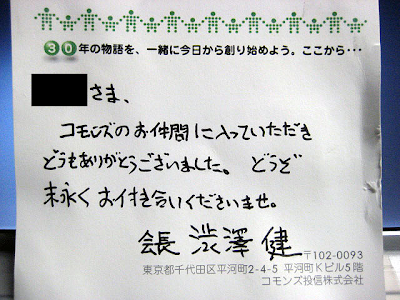 30年の物語を、一緒に今日から創り始めよう。ここから・・・
さま、
コモンズのお仲間に入っていただき
どうもありがとうございました。どうぞ
末永くお付き合いくださいませ。
会長 渋澤 健
〒102-0093
東京都千代田区平河町2-4-5 平河町Kビル5階
コモンズ投信株式会社